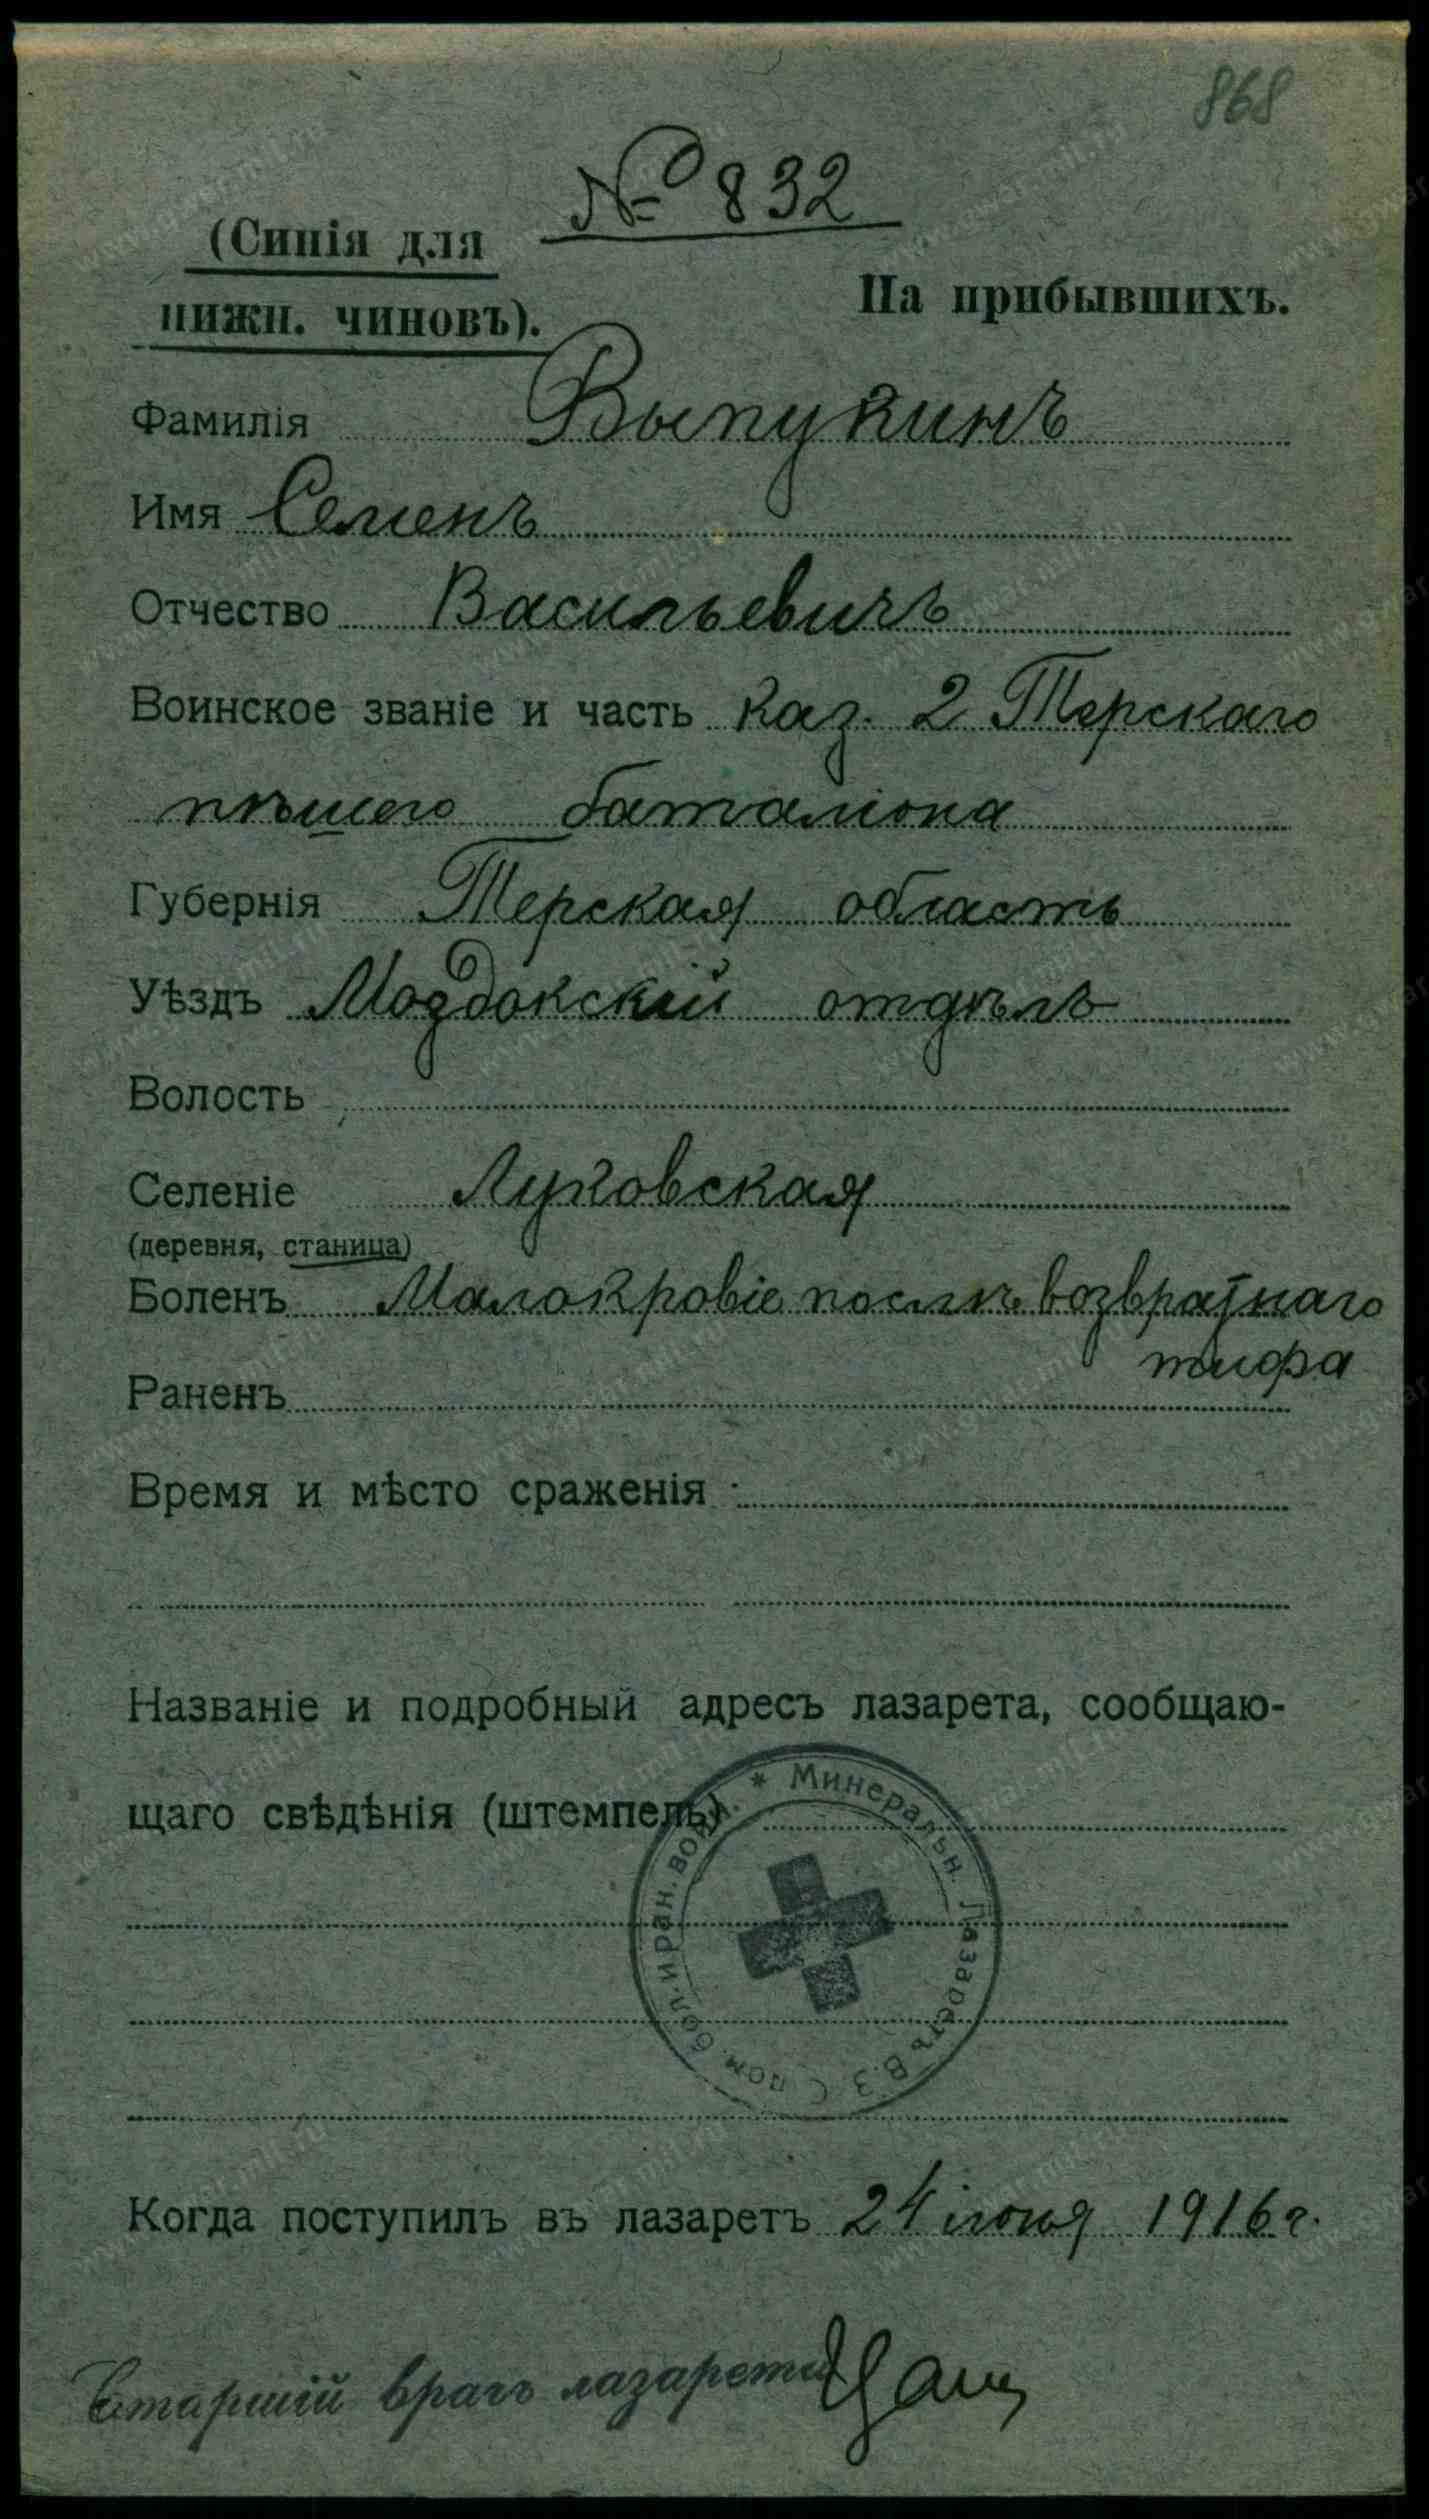 868
№ 832
(Синія для
нижн. чиновъ).
На прибывшихъ.
Фамилія Выпукинъ
Имя Семенъ
Отчество Васильевичъ
Воинское званіе и часть каз. 2 Терскаго
пѣшего баталіона
Губернія Терская область
Уѣздъ Моздокскій отдѣлъ
Волость
Селеніе Луковская
(деревня, станица)
Боленъ Малокровіе послѣ возвратнаго
тифа
Раненъ
Время и мѣсто сраженія
Названіе и подробный адресъ лазарета, сообщаю-
щаго свѣдѣнія (штемпель)
* Минеральн. Лазаретъ В.З.С. пом. бол. и ран. воин.
Когда поступилъ въ лазаретъ 24 іюня 1916 г.
Старшій врачъ лазарета